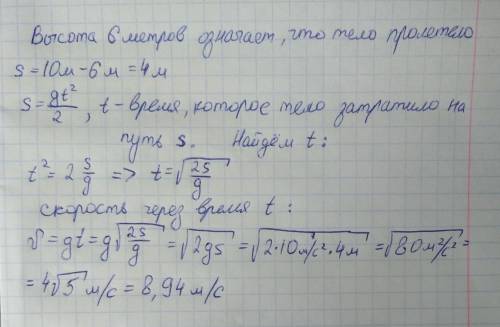 Высота 6 метров означает, что тело пролетело
s = 10м - 6м = 4м
s = gt²/2, t - время, которое тело затратило на
путь s. Найдём t:
t² = 2 s/g => t = √(2s/g)
скорость через время t:
v = gt = g√(2s/g) = √(2gs) = √(2·10м/с²·4м) = √(80м²/с²) =
= 4√5 м/с = 8,94 м/с